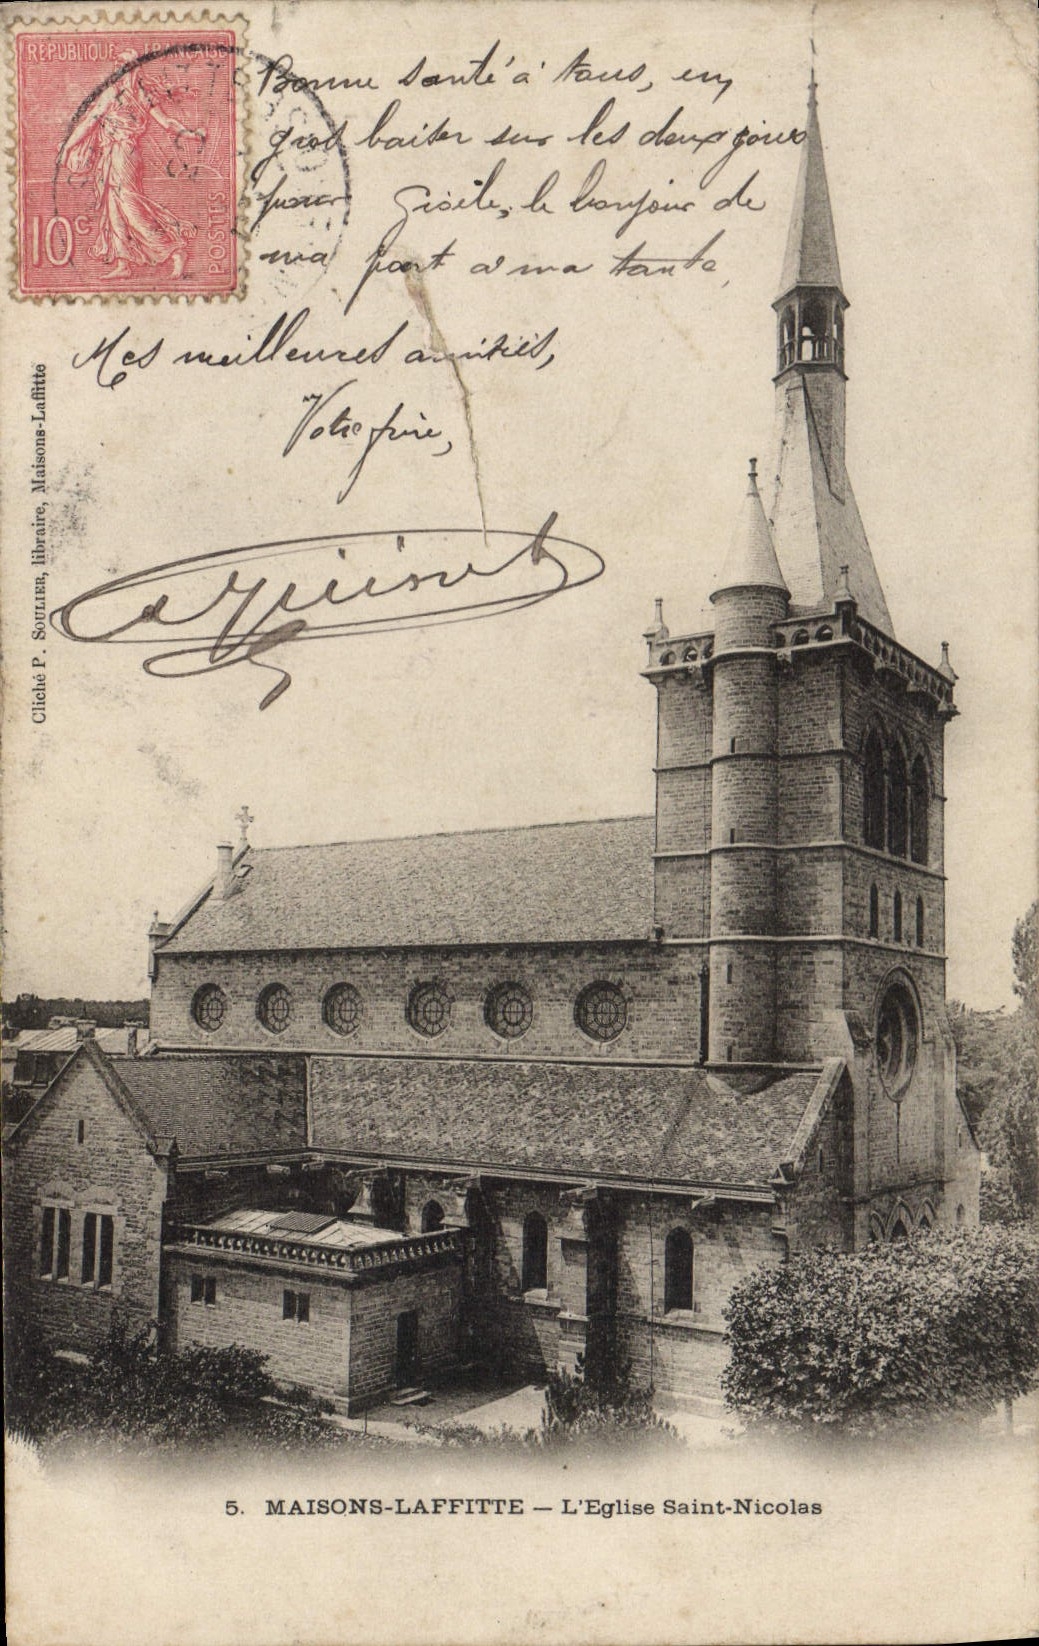 RÉPUBLIQUE FRANÇAISE
10c
POSTES
Bonne santé à tous, un
gros baiser sur les deux joues
pour Gisèle, le bonjour de
ma part à ma tante,
Mes meilleures amitiés,
Votre frère,
Cliché P. SOULIER, libraire, Maisons-Laffitte
5. MAISONS-LAFFITTE — L'Eglise Saint-Nicolas